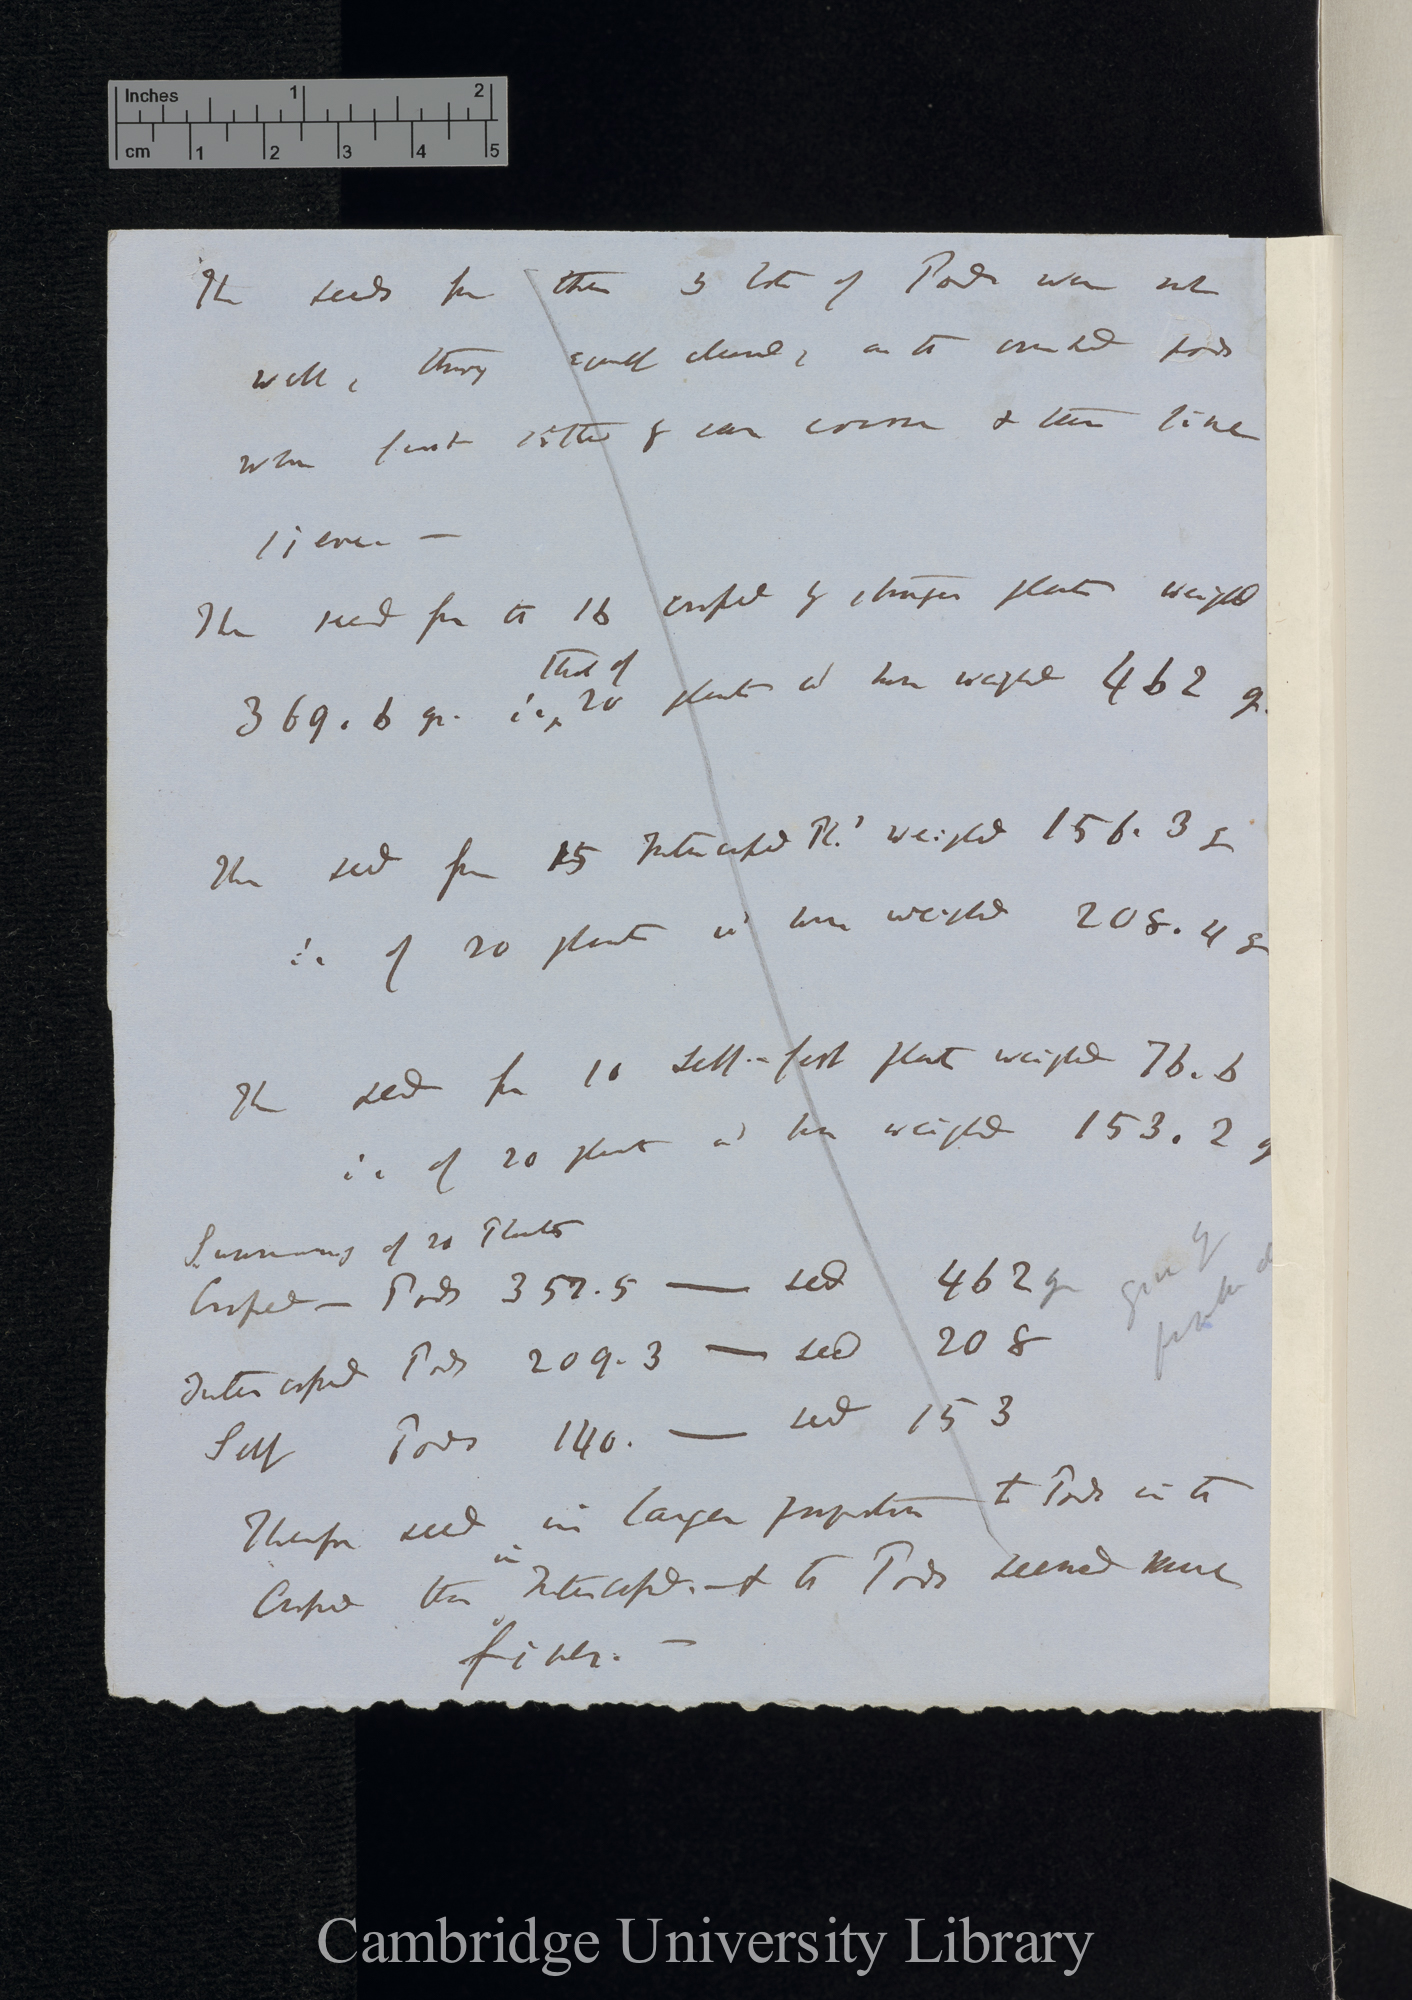 Inches 1 2
cm 1 2 3 4 5
The seeds from these 3 lots of Pods were not
well, though equally cleaned, as the crushed pods
were first sifted by same coarse & then
sieve —
The seed from the 16 crossed by stranger plants weighed
that of
369.6 gr. i.e. 20 plants wd have weighed 462 gr.
The seed from 15 Intercrossed Pl. weighed 156.3 gr
i.e. of 20 plants wd have weighed 208.4 gr
The seed from 10 self-fert plants weighed 76.6
i.e. of 20 plants wd have weighed 153.2 g
Summary of 20 Plants
Crossed — Pods 357.5 — seed 462 gr
Intercrossed Pods 209.3 — seed 208
Self Pods 140. — seed 153
Therefore seed in larger proportion to Pods in the
in
Crossed than Intercrossed. — & the Pods seemed much
finer. —
Cambridge University Library